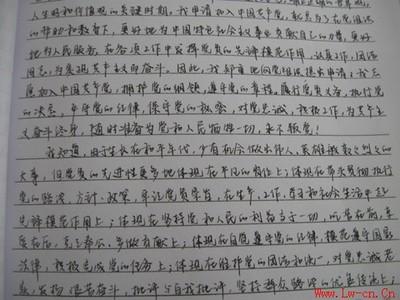 人生观和价值观的关键时期，我申请加入中国共产党，就是为了在党组织
的帮助和教育下，更好地为中国特色社会主义事业贡献自己的力量，更好
地为人民服务，在各项工作中发挥党员的先锋模范作用，认真工作，团结
同志，为实现共产主义而奋斗。因此，我郑重地向党组织提出申请：我志
愿加入中国共产党，拥护党的纲领，遵守党的章程，履行党员义务，执行党
的决定，严守党的纪律，保守党的秘密，对党忠诚，积极工作，为共产主
义奋斗终身，随时准备为党和人民牺牲一切，永不叛党！
我知道，由于生长在和平年代，少有机会做出伟人、英雄般轰轰烈烈的
大事，但党员的先进性更多地体现在平凡的岗位上；体现在带头贯彻执行
党的路线、方针、政策，牢记党员责任，在生产、工作、学习和社会生活中起
先锋模范作用上；体现在坚持党和人民的利益高于一切，吃苦在前，享
受在后，克己奉公，多做贡献上；体现在自觉遵守党的纪律，模范遵守国家
法律，积极完成党的任务上；体现在维护党的团结和统一，对党忠诚老
实，发扬 批评与自我批评，坚持群众路线的优良传统上；
www.Lw-cn.Cn